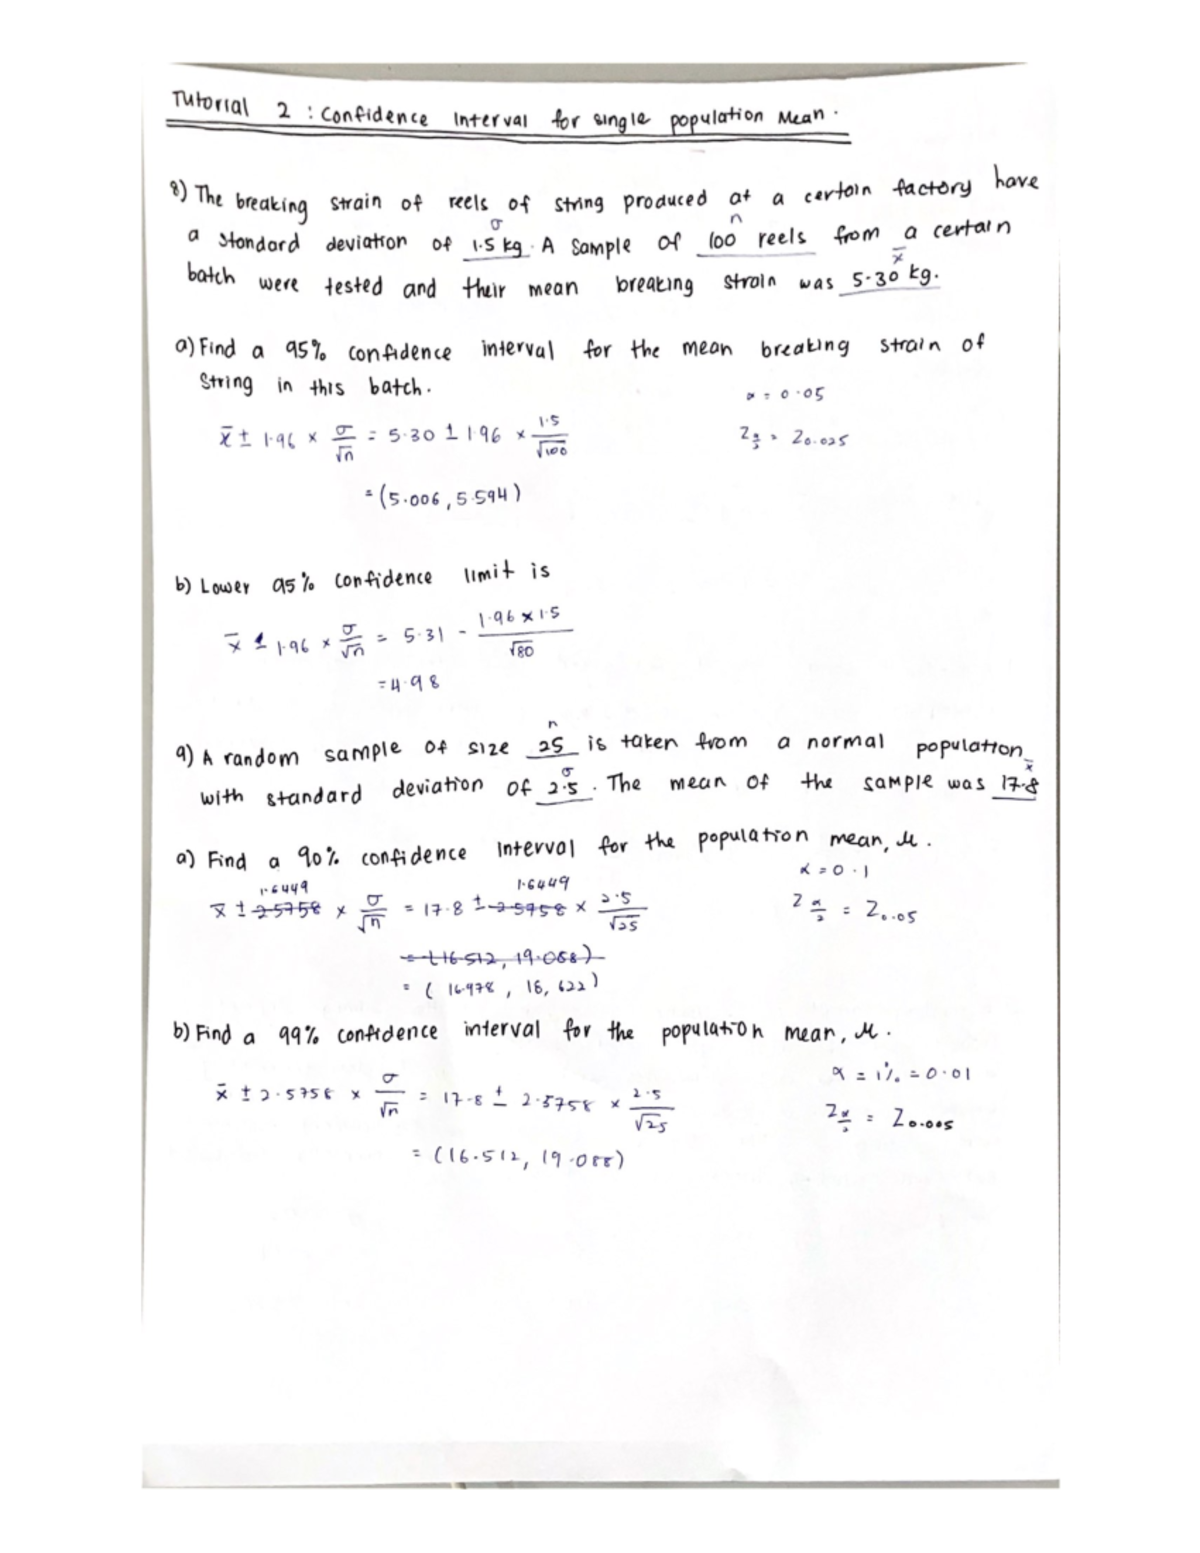 Tutorial 2 : Confidence Interval for single population Mean.
8) The breaking strain of reels of string produced at a certain factory have
σ n
a standard deviation of 1.5 kg. A sample of 100 reels from a certain
x̄
batch were tested and their mean breaking strain was 5.30 kg.
a) Find a 95% confidence interval for the mean breaking strain of
string in this batch.
α = 0.05
x̄ ± 1.96 × σ/√n = 5.30 ± 1.96 × 1.5/√100
Zα/2 = Z0.025
= (5.006, 5.594)
b) Lower 95% confidence limit is
x̄ ± 1.96 × σ/√n = 5.31 - 1.96 × 1.5/√80
= 4.98
n
9) A random sample of size 25 is taken from a normal population
σ x̄
with standard deviation of 2.5. The mean of the sample was 17.8
a) Find a 90% confidence interval for the population mean, μ.
α = 0.1
1.6449 1.6449
x̄ ± 2.5758 × σ/√n = 17.8 ± 2.5758 × 2.5/√25
Zα/2 = Z0.05
= (16.512, 19.088)
= (16.978, 18,622)
b) Find a 99% confidence interval for the population mean, μ.
α = 1% = 0.01
x̄ ± 2.5758 × σ/√n = 17.8 ± 2.5758 × 2.5/√25
Zα/2 = Z0.005
= (16.512, 19.088)